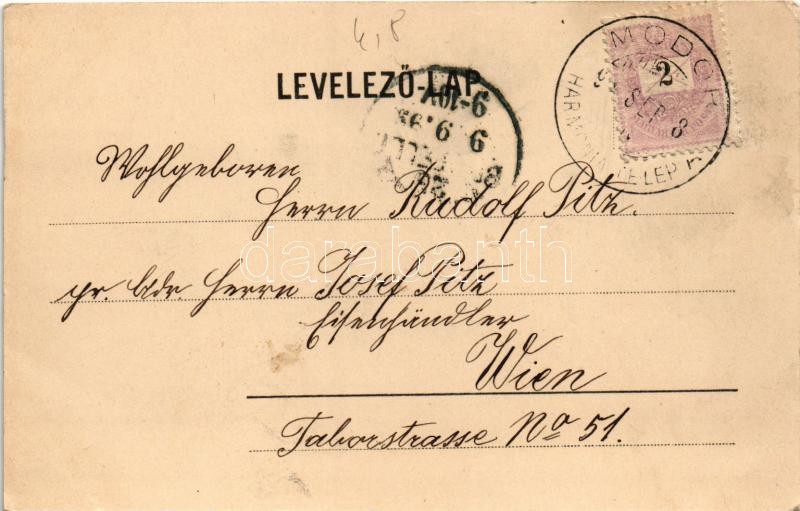 4,8
LEVELEZŐ-LAP
MODOR
HARMONIA TELEP
SEP 8
2
9-10V
9.9.98
BESTELLT
Wohlgeboren
Herrn Rudolf Pitz.
pr. Adr. Herrn Josef Pitz
Eisenhändler
Wien
Taborstrasse No 51.
darabanth